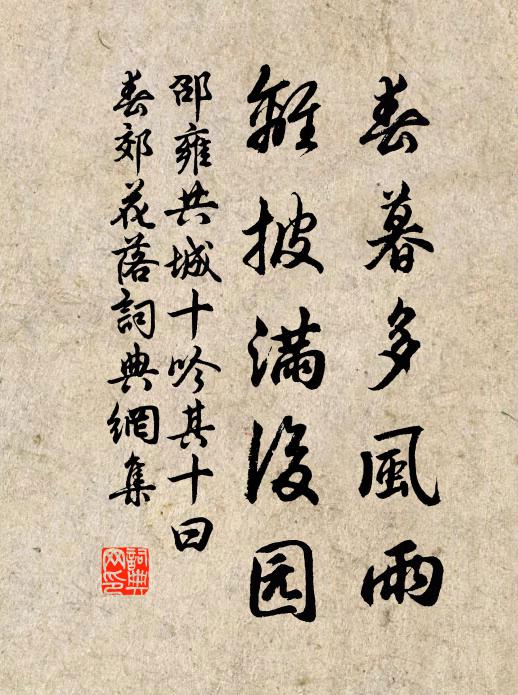 春暮多風雨
離披滿後园
邵雍共城十吟其十曰
春郊花落詞典網集
詞典网印